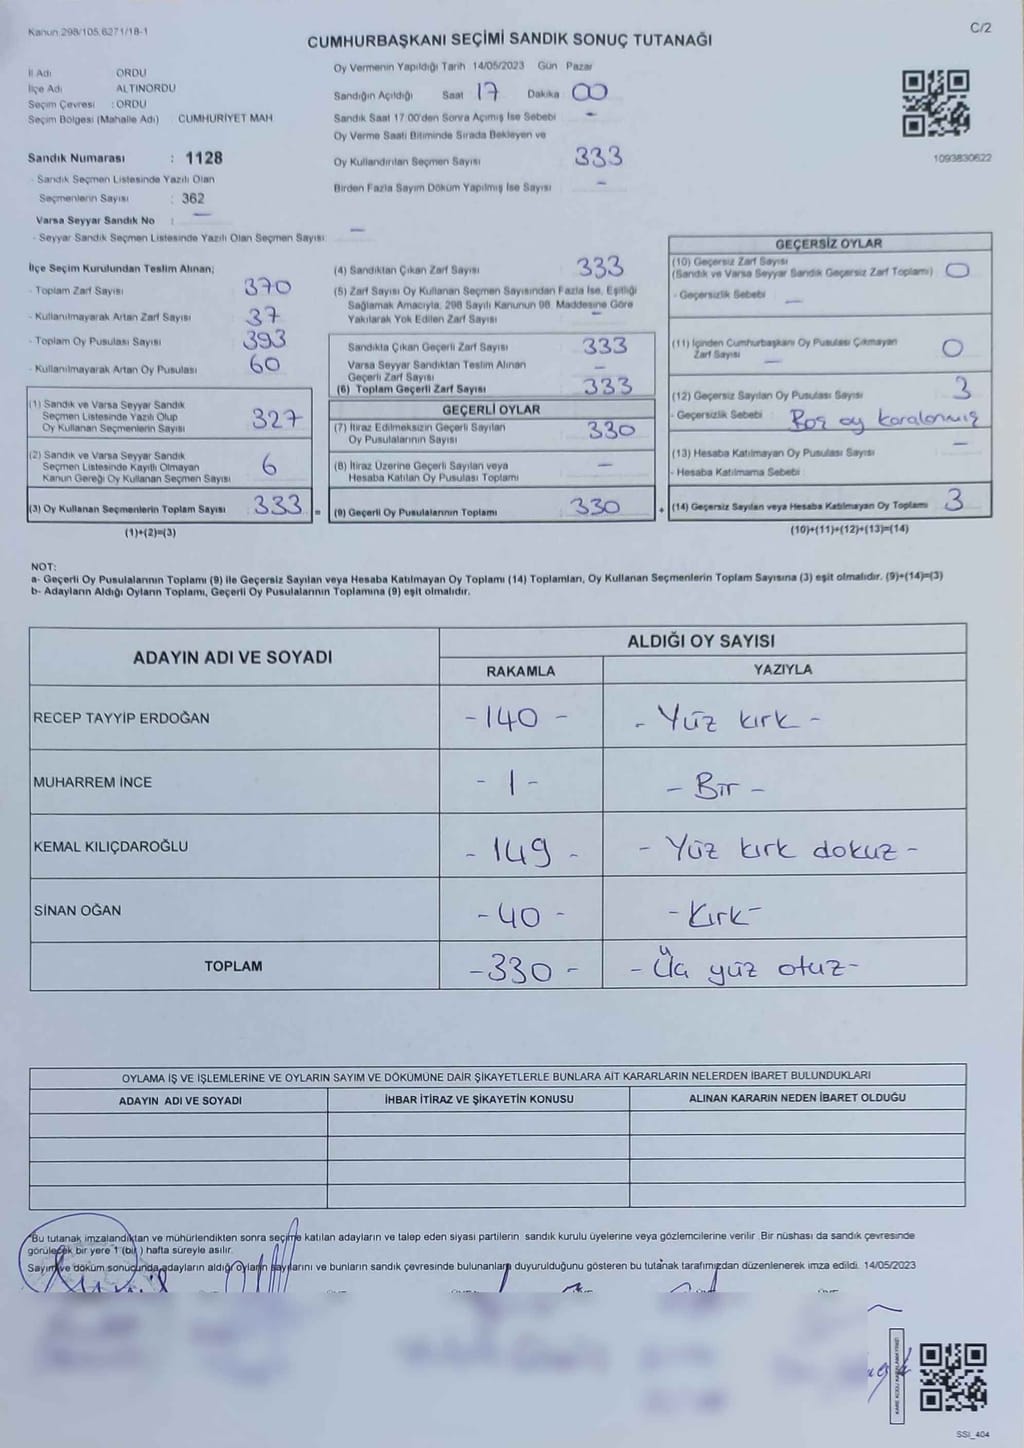 Kanun 298/105,6271/18-1
C/2
CUMHURBAŞKANI SEÇİMİ SANDIK SONUÇ TUTANAĞI
İl Adı ORDU
İlçe Adı ALTINORDU
Seçim Çevresi : ORDU
Seçim Bölgesi (Mahalle Adı) CUMHURİYET MAH
Sandık Numarası : 1128
- Sandık Seçmen Listesinde Yazılı Olan
Seçmenlerin Sayısı : 362
Varsa Seyyar Sandık No : —
- Seyyar Sandık Seçmen Listesinde Yazılı Olan Seçmen Sayısı: —
Oy Vermenin Yapıldığı Tarih 14/05/2023 Gün Pazar
Sandığın Açıldığı Saat 17 Dakika 00
Sandık Saat 17:00'den Sonra Açımış İse Sebebi -
Oy Verme Saati Bitiminde Sırada Bekleyen ve
Oy Kullandırılan Seçmen Sayısı 333
Birden Fazla Sayım Döküm Yapılmış İse Sayısı -
1093830622
İlçe Seçim Kurulundan Teslim Alınan;
- Toplam Zarf Sayısı 370
- Kullanılmayarak Artan Zarf Sayısı 37
- Toplam Oy Pusulası Sayısı 393
- Kullanılmayarak Artan Oy Pusulası 60
(1) Sandık ve Varsa Seyyar Sandık
Seçmen Listesinde Yazılı Olup
Oy Kullanan Seçmenlerin Sayısı 327
(2) Sandık ve Varsa Seyyar Sandık
Seçmen Listesinde Kayıtlı Olmayan
Kanun Gereği Oy Kullanan Seçmen Sayısı 6
(3) Oy Kullanan Seçmenlerin Toplam Sayısı 333 =
(1)+(2)=(3)
(4) Sandıktan Çıkan Zarf Sayısı 333
(5) Zarf Sayısı Oy Kullanan Seçmen Sayısından Fazla İse, Eşitliği
Sağlamak Amacıyla, 298 Sayılı Kanunun 98. Maddesine Göre
Yakılarak Yok Edilen Zarf Sayısı —
Sandıkta Çıkan Geçerli Zarf Sayısı 333
Varsa Seyyar Sandıktan Teslim Alınan
Geçerli Zarf Sayısı —
(6) Toplam Geçerli Zarf Sayısı 333
GEÇERLİ OYLAR
(7) İtiraz Edilmeksizin Geçerli Sayılan
Oy Pusulalarının Sayısı 330
(8) İtiraz Üzerine Geçerli Sayılan veya
Hesaba Katılan Oy Pusulası Toplamı —
(9) Geçerli Oy Pusulalarının Toplamı 330 +
GEÇERSİZ OYLAR
(10) Geçersiz Zarf Sayısı
(Sandık ve Varsa Seyyar Sandık Geçersiz Zarf Toplamı) 0
- Geçersizlik Sebebi —
(11) İçinden Cumhurbaşkanı Oy Pusulası Çıkmayan
Zarf Sayısı — 0
(12) Geçersiz Sayılan Oy Pusulası Sayısı 3
- Geçersizlik Sebebi : Boş oy karalanmış
(13) Hesaba Katılmayan Oy Pusulası Sayısı —
- Hesaba Katılmama Sebebi
(14) Geçersiz Sayılan veya Hesaba Katılmayan Oy Toplamı 3
(10)+(11)+(12)+(13)=(14)
NOT:
a- Geçerli Oy Pusulalarının Toplamı (9) ile Geçersiz Sayılan veya Hesaba Katılmayan Oy Toplamı (14) Toplamları, Oy Kullanan Seçmenlerin Toplam Sayısına (3) eşit olmalıdır. (9)+(14)=(3)
b- Adayların Aldığı Oyların Toplamı, Geçerli Oy Pusulalarının Toplamına (9) eşit olmalıdır.
ADAYIN ADI VE SOYADI ALDIĞI OY SAYISI
RAKAMLA YAZIYLA
RECEP TAYYİP ERDOĞAN -140- - Yüz kırk -
MUHARREM İNCE -1- - Bir -
KEMAL KILIÇDAROĞLU -149- - Yüz kırk dokuz -
SİNAN OĞAN -40- - Kırk -
TOPLAM -330- - Üç yüz otuz -
OYLAMA İŞ VE İŞLEMLERİNE VE OYLARIN SAYIM VE DÖKÜMÜNE DAİR ŞİKAYETLERLE BUNLARA AİT KARARLARIN NELERDEN İBARET BULUNDUKLARI
ADAYIN ADI VE SOYADI İHBAR İTİRAZ VE ŞİKAYETİN KONUSU ALINAN KARARIN NEDEN İBARET OLDUĞU
Bu tutanak imzalandıktan ve mühürlendikten sonra seçime katılan adayların ve talep eden siyasi partilerin sandık kurulu üyelerine veya gözlemcilerine verilir .Bir nüshası da sandık çevresinde
görülecek bir yere 1 (bir ) hafta süreyle asılır.
Sayım ve döküm sonucunda,adayların aldığı oyların sayılarını ve bunların sandık çevresinde bulunanlara duyurulduğunu gösteren bu tutanak tarafımızdan düzenlenerek imza edildi. 14/05/2023
SSI_404